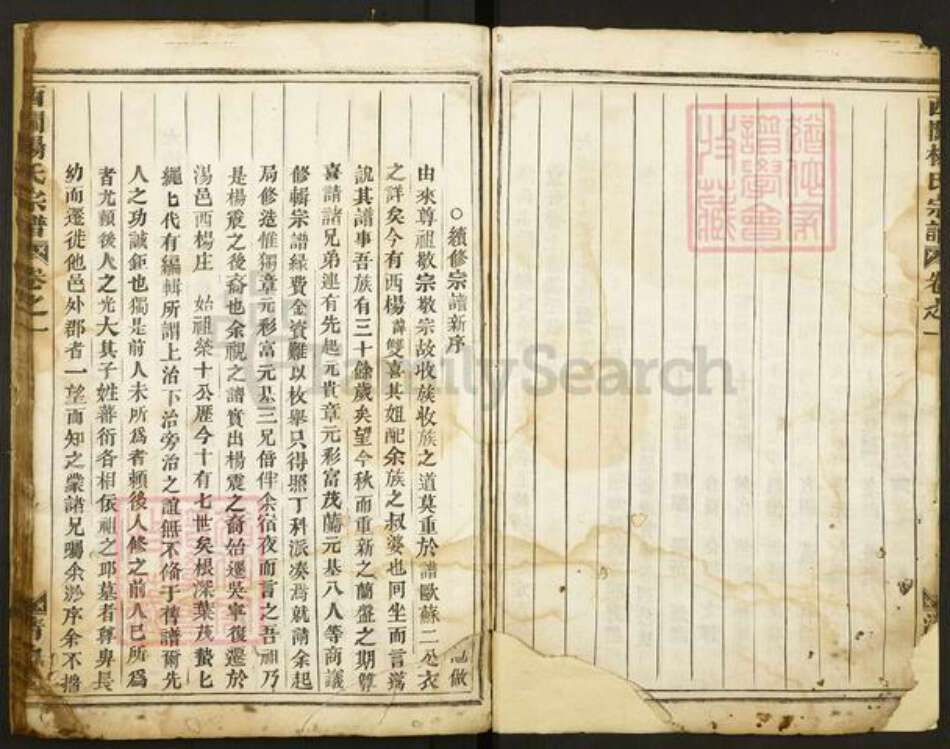 西園楊氏宗譜 卷之一
○續修宗譜新序
由來尊祖敬宗敬宗故收族收族之道莫重於譜歐蘇二公衣
做
之詳矣今有西楊壽雙喜其姐配余族之叔婆也同坐而言蕩
說其譜事吾族有三十餘歲矣望今秋而重新之蘭盤之期尊
喜請諸兄弟連有先起元貴章元彩富茂蘭元基八人等商議
修輯宗譜緣費金資難以枚舉只得照丁科派湊焉就請余起
局修造惟獨章元彩富元基三兄倍伴余宿夜而言之吾祖乃
是楊震之後裔也余視之譜實出楊震之裔始遷吳寧復遷於
湯邑西楊庄 始祖榮十公歷今十有七世矣根深葉茂蟄匕
繩匕代有編輯所謂上治下治旁治之誼無不俻于舊譜爾先
人之功誠鉅也獨是前人未所爲者頼後人修之前人已所爲
者尤頼後人之光大其子姓蕃衍各相依祖之耶墓者尊卑長
幼而遷徙他邑外郡者一望而知之蒙諸兄囑余渺序余不揣
西園楊氏宗譜 卷之一
FamilySearch